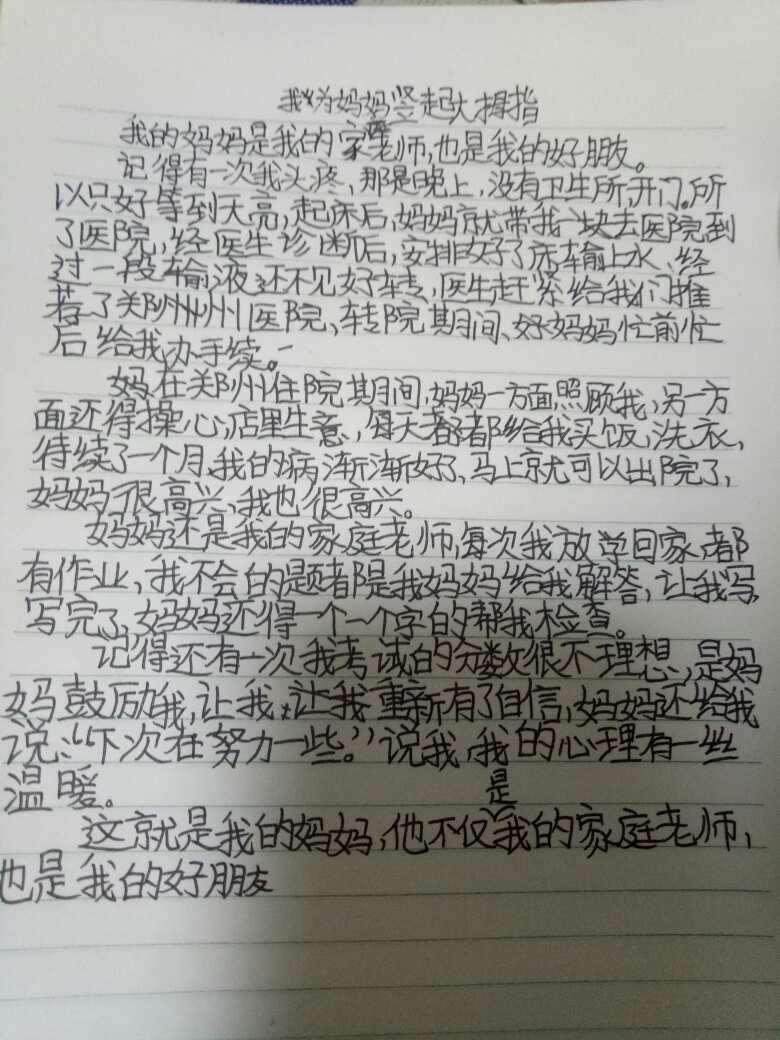 我为妈妈竖起大拇指
我的妈妈是我的家庭老师,也是我的好朋友。
记得有一次我头疼,那是晚上,没有卫生所开门。所
以只好等到天亮,起床后,妈妈就带我一块去医院到
了医院,经医生诊断后,安排好了床输上水、经
过一段输液还不见好转,医生赶紧给我们推
荐了郑州州医院、转院期间、好妈妈忙前忙
后给我办手续。
妈在郑州住院期间,妈妈一方面照顾我,另一方
面还得操心店里生意,每天都给我买饭,洗衣,
待续了一个月、我的病渐渐好了,马上就可以出院了,
妈妈很高兴,我也很高兴。
妈妈还是我的家庭老师,每次我放学回家都
有作业,我不会的题都是我妈妈给我解答,让我写,
写完了,妈妈还得一个一个字的帮我检查。
记得还有一次我考试的分数很不理想,是妈
妈鼓励我,让我让我重新有了自信,妈妈还给我
说:“下次在努力一些。”说我,我的心理有一丝
温暖。
这就是我的妈妈,他不仅是我的家庭老师,
也是我的好朋友